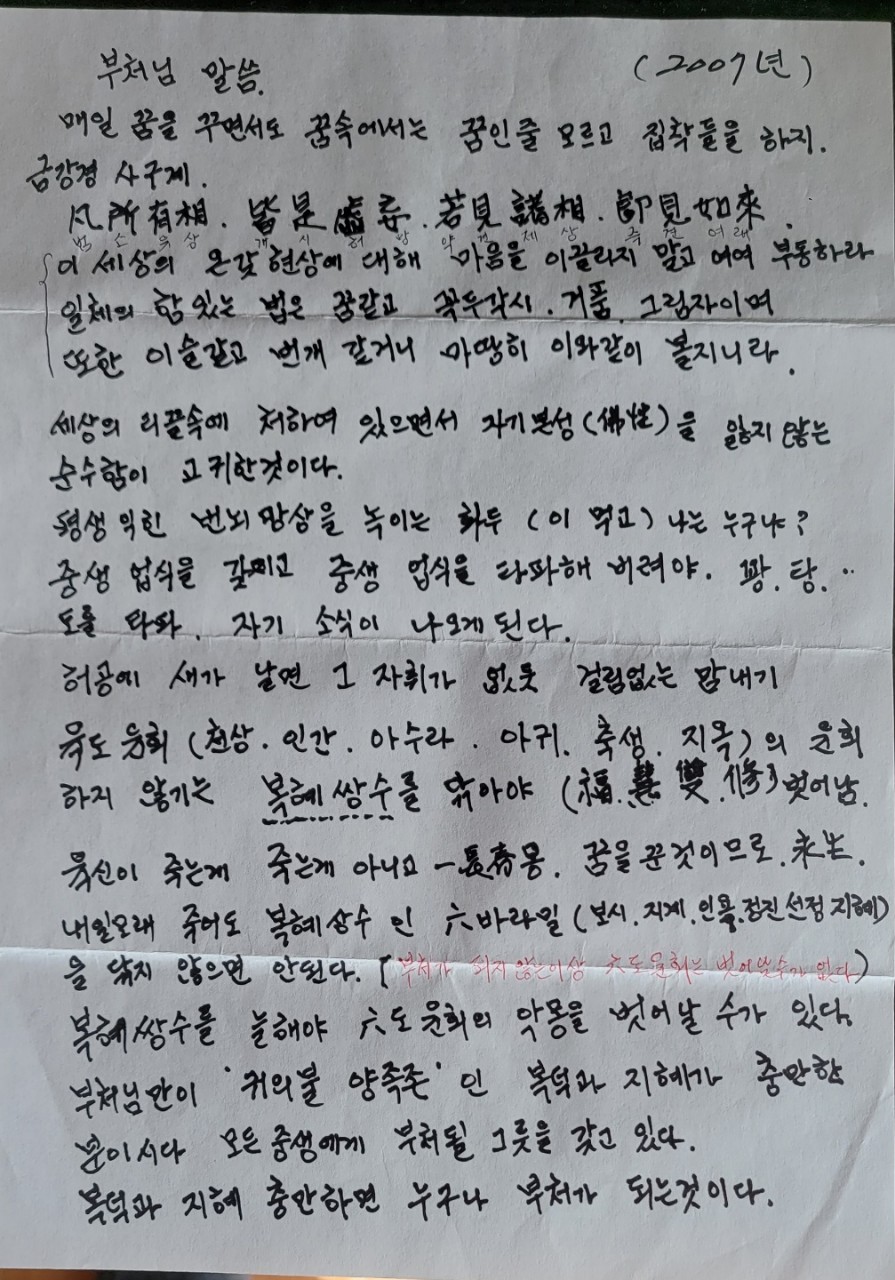 부처님 말씀. (2007년)
매일 꿈을 꾸면서도 꿈속에서는 꿈인줄 모르고 집착들을 하지.
금강경 사구게.
凡所有相. 皆是虛妄. 若見諸相. 卽見如來.
범 소 유 상 개 시 허 망 약 견 제 상 즉 견 여래
이 세상의 온갖 현상에 대해 마음을 이끌리지 말고 여여 부동하라
일체의 함 있는 법은 꿈같고 꼭두각시. 거품. 그림자이며
또한 이슬같고 번개 같거니 마땅히 이와같이 볼지니라.
세상의 티끌속에 처하여 있으면서 자기본성(佛性)을 잃지 않는
순수함이 고귀한것이다.
평생 익힌 번뇌망상을 녹이는 화두 (이 뭣고) 나는 누구냐?
중생 업식을 갖고 중생 업식을 타파해 버려야. 꽝. 탕. ..
도를 타파. 자기 소식이 나오게된다.
허공에 새가 날면 그 자취가 없듯 걸림없는 맘내기
육도 윤회 (천상. 인간. 아수라. 아귀. 축생. 지옥)의 윤회
하지 않기는 복혜쌍수를 닦아야 (福.慧.雙.修) 벗어남.
육신이 죽는게 죽는게 아니고 一長春몽. 꿈을 꾼것이므로.
내일모래 죽어도 복혜상수 인 六바라밀 (보시.지계.인욕.정진 선정 지혜)
을 닦지 않으면 안된다. (부처가 되지 않는이상 六도윤회는 벗어날수가 없다)
복혜쌍수를 늘해야 六도윤회의 악몽을 벗어날 수가 있다.
부처님만이 '귀의불 양족존'인 복덕과 지혜가 충만한
분이시다 모든중생에게 부처될 그릇을 갖고 있다.
복덕과 지혜 충만하면 누구나 부처가 되는것이다.